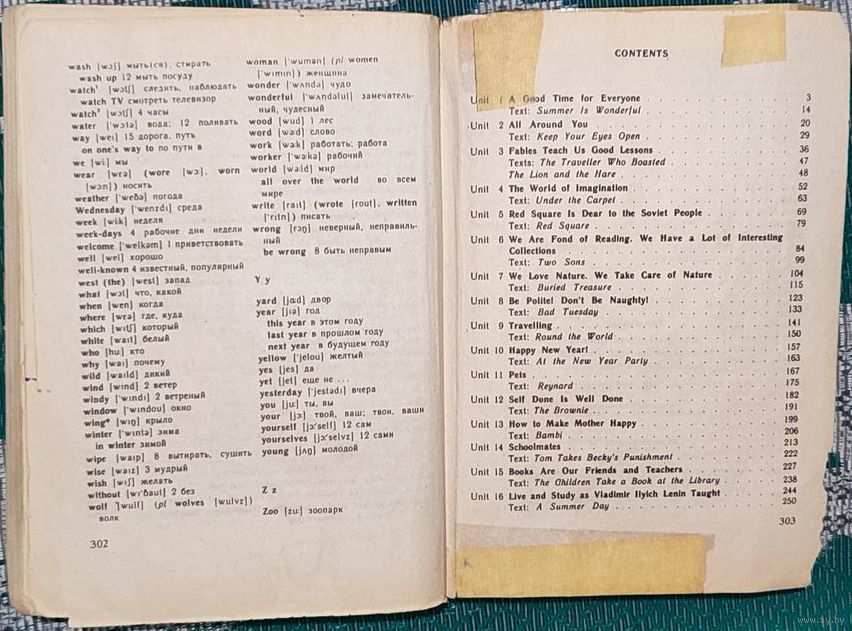 wash [wɔʃ] мыть(ся), стирать
wash up 12 мыть посуду
watch¹ [wɔtʃ] следить, наблюдать
watch TV смотреть телевизор
watch² [wɔtʃ] 4 часы
water ['wɔtə] вода; 12 поливать
way [wei] 15 дорога, путь
on one's way to по пути в
we [wi:] мы
wear [wɛə] (wore [wɔ:], worn
[wɔ:n]) носить
weather ['weðə] погода
Wednesday ['wenzdɪ] среда
week [wi:k] неделя
week-days 4 рабочие дни недели
welcome ['welkəm] 1 приветствовать
well [wel] хорошо
well-known 4 известный, популярный
west (the) [west] запад
what [wɔt] что, какой
when [wen] когда
where [wɛə] где, куда
which [wɪtʃ] который
white [waɪt] белый
who [hu:] кто
why [waɪ] почему
wild [waɪld] дикий
wind [wɪnd] 2 ветер
windy ['wɪndɪ] 2 ветреный
window ['wɪndou] окно
wing* [wɪŋ] крыло
winter ['wɪntə] зима
in winter зимой
wipe [waɪp] 8 вытирать, сушить
wise [waɪz] 3 мудрый
wish [wɪʃ] желать
without [wɪ'ðaut] 2 без
wolf [wulf] (pl wolves [wulvz])
волк
302
woman ['wumən] (pl women
['wɪmɪn]) женщина
wonder ['wʌndə] чудо
wonderful ['wʌndəful] замечатель-
ный, чудесный
wood [wud] 1 лес
word [wə:d] слово
work [wə:k] работать; работа
worker ['wə:kə] рабочий
world [wə:ld] мир
all over the world во всем
мире
write [raɪt] (wrote [rout], written
['rɪtn]) писать
wrong [rɔŋ] неверный, неправиль-
ный
be wrong 8 быть неправым
Y y
yard [jɑ:d] двор
year [jɪə] год
this year в этом году
last year в прошлом году
next year в будущем году
yellow ['jelou] желтый
yes [jes] да
yet [jet] еще не ...
yesterday ['jestədɪ] вчера
you [ju:] ты, вы
your [jɔ:] твой, ваш; твои, ваши
yourself [jɔ:'self] 12 сам
yourselves [jɔ:'selvz] 12 сами
young [jʌŋ] молодой
Z z
Zoo [zu:] зоопарк
CONTENTS
Unit 1 A Good Time for Everyone . . . . . 3
Text: Summer Is Wonderful . . . . . 14
Unit 2 All Around You . . . . . 20
Text: Keep Your Eyes Open . . . . . 29
Unit 3 Fables Teach Us Good Lessons . . . . . 36
Texts: The Traveller Who Boasted . . . . . 47
The Lion and the Hare . . . . . 48
Unit 4 The World of Imagination . . . . . 52
Text: Under the Carpet . . . . . 63
Unit 5 Red Square Is Dear to the Soviet People . . . . . 69
Text: Red Square . . . . . 79
Unit 6 We Are Fond of Reading. We Have a Lot of Interesting
Collections . . . . . 84
Text: Two Sons . . . . . 99
Unit 7 We Love Nature. We Take Care of Nature . . . . . 104
Text: Buried Treasure . . . . . 115
Unit 8 Be Polite! Don't Be Naughty! . . . . . 123
Text: Bad Tuesday . . . . . 133
Unit 9 Travelling . . . . . 141
Text: Round the World . . . . . 150
Unit 10 Happy New Year! . . . . . 157
Text: At the New Year Party . . . . . 163
Unit 11 Pets . . . . . 167
Text: Reynard . . . . . 175
Unit 12 Self Done Is Well Done . . . . . 182
Text: The Brownie . . . . . 191
Unit 13 How to Make Mother Happy . . . . . 199
Text: Bambi . . . . . 206
Unit 14 Schoolmates . . . . . 213
Text: Tom Takes Becky's Punishment . . . . . 222
Unit 15 Books Are Our Friends and Teachers . . . . . 227
Text: The Children Take a Book at the Library . . . . . 238
Unit 16 Live and Study as Vladimir Ilyich Lenin Taught . . . . . 244
Text: A Summer Day . . . . . 250
303
www.ay.by